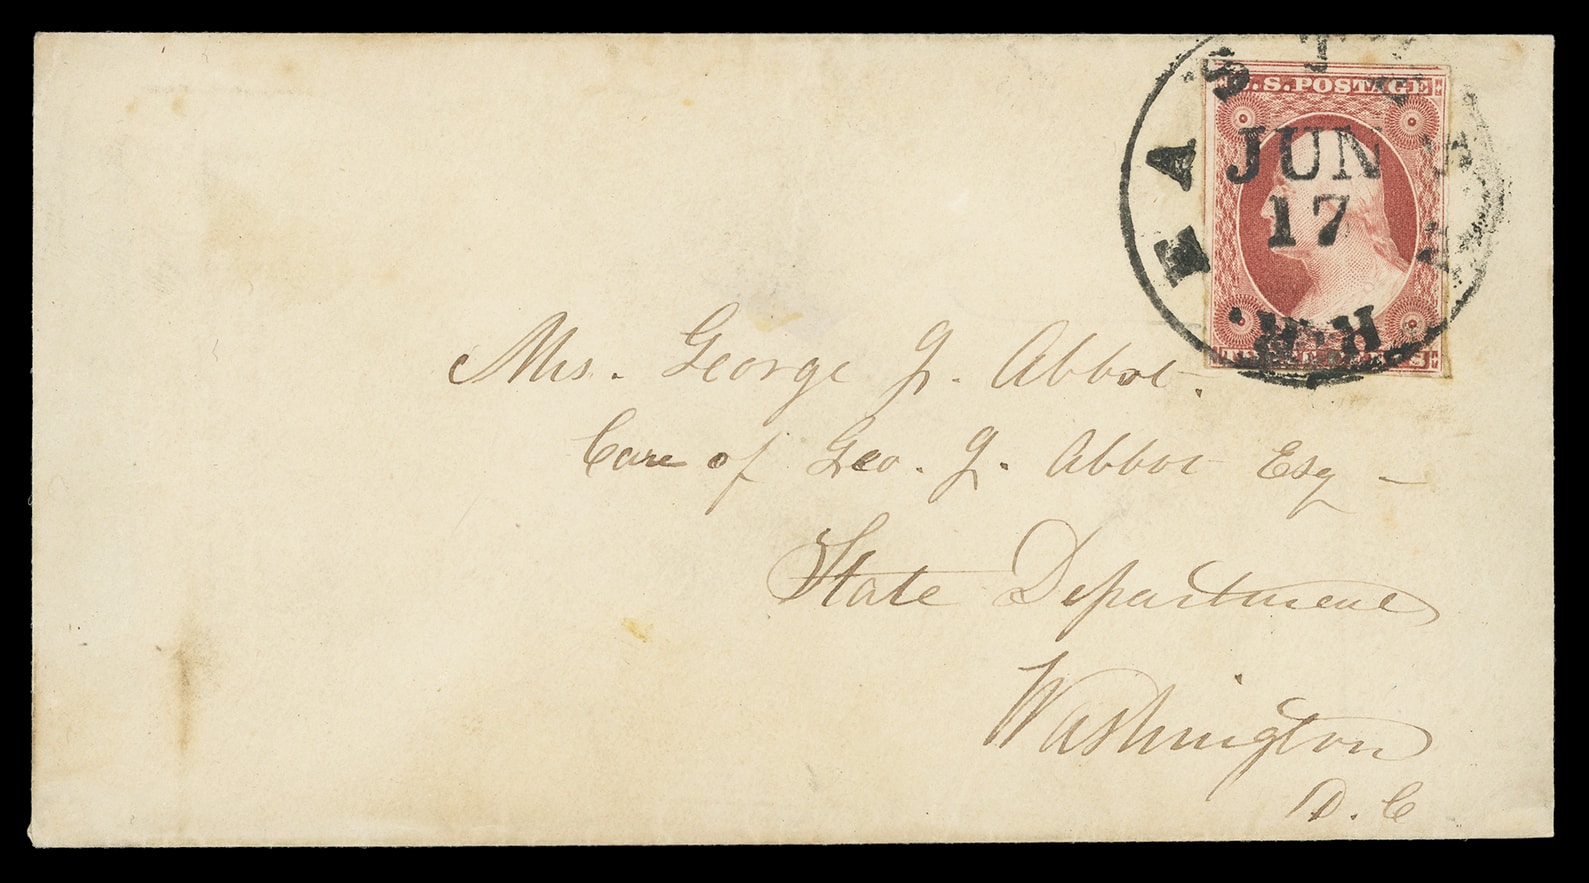 EASTERN R.R.
U.S. POSTAGE
JUN
17
THREE CENTS
Mrs. George J. Abbot.
Care of Geo. J. Abbot Esq -
State Department
Washington
D. C